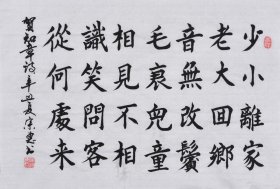 少小離家
老大回鄉
音無改鬢
毛衰兒童
相見不相
識笑問客
從何處来
賀知章詩辛丑夏